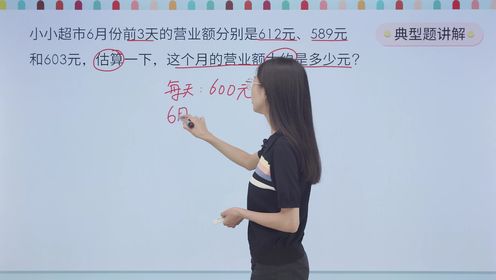 小小超市6月份前3天的营业额分别是612元、589元
典型题讲解
和603元，估算一下，这个月的营业额大约是多少元？
每天：600元
6月